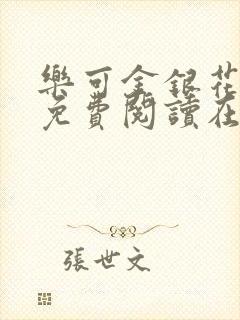 樂可金銀花
免費閱讀在
張世文